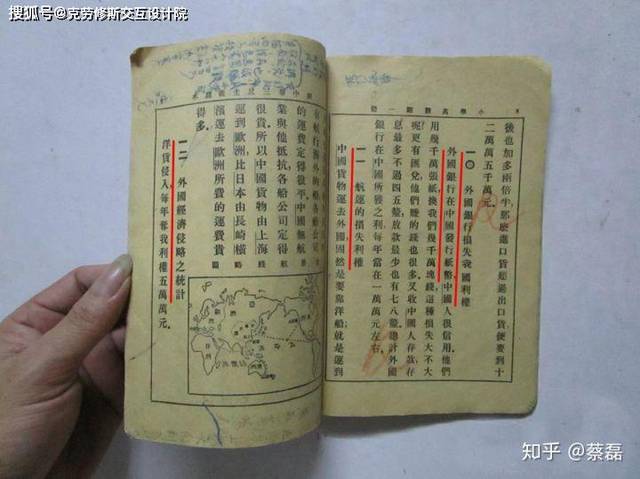 搜狐号@克劳修斯交互设计院
後也加多兩倍半,那麼進口貨超過出口貨便要到十
二萬萬五千萬元。
一〇 外國銀行損失我國利權
外國銀行在中國發行紙幣,中國人很信用他們
用幾千萬張紙,換我們幾千萬塊錢,這種損失大不大
呢?更有匯兌,他們賺的錢也很多;又收中國人存款,存
息最多不過四五釐,放款最少也有七八釐;總計外國
銀行在中國所獲之利,每年當在一萬萬元左右。
一一 航運的損失利權
中國貨物運去外國,固然是要靠洋船,就是運到
的運費定得很平,中國無航
業與他抵抗,各船公司定得
很貴。所以中國貨物由上海
運到歐洲,比日本由長崎橫
濱運去歐洲,所費的運費
得多。
一二 外國經濟侵略之統計
洋貨侵入,每年奪我利權五萬萬元。
知乎 @蔡磊